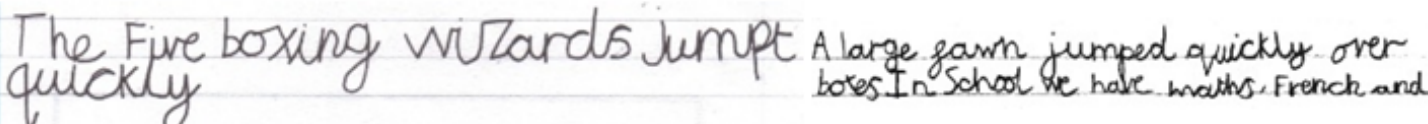 The Five boxing wizards jumpt
quickly
A large fawn jumped quickly over
boxes In School we have maths, French and